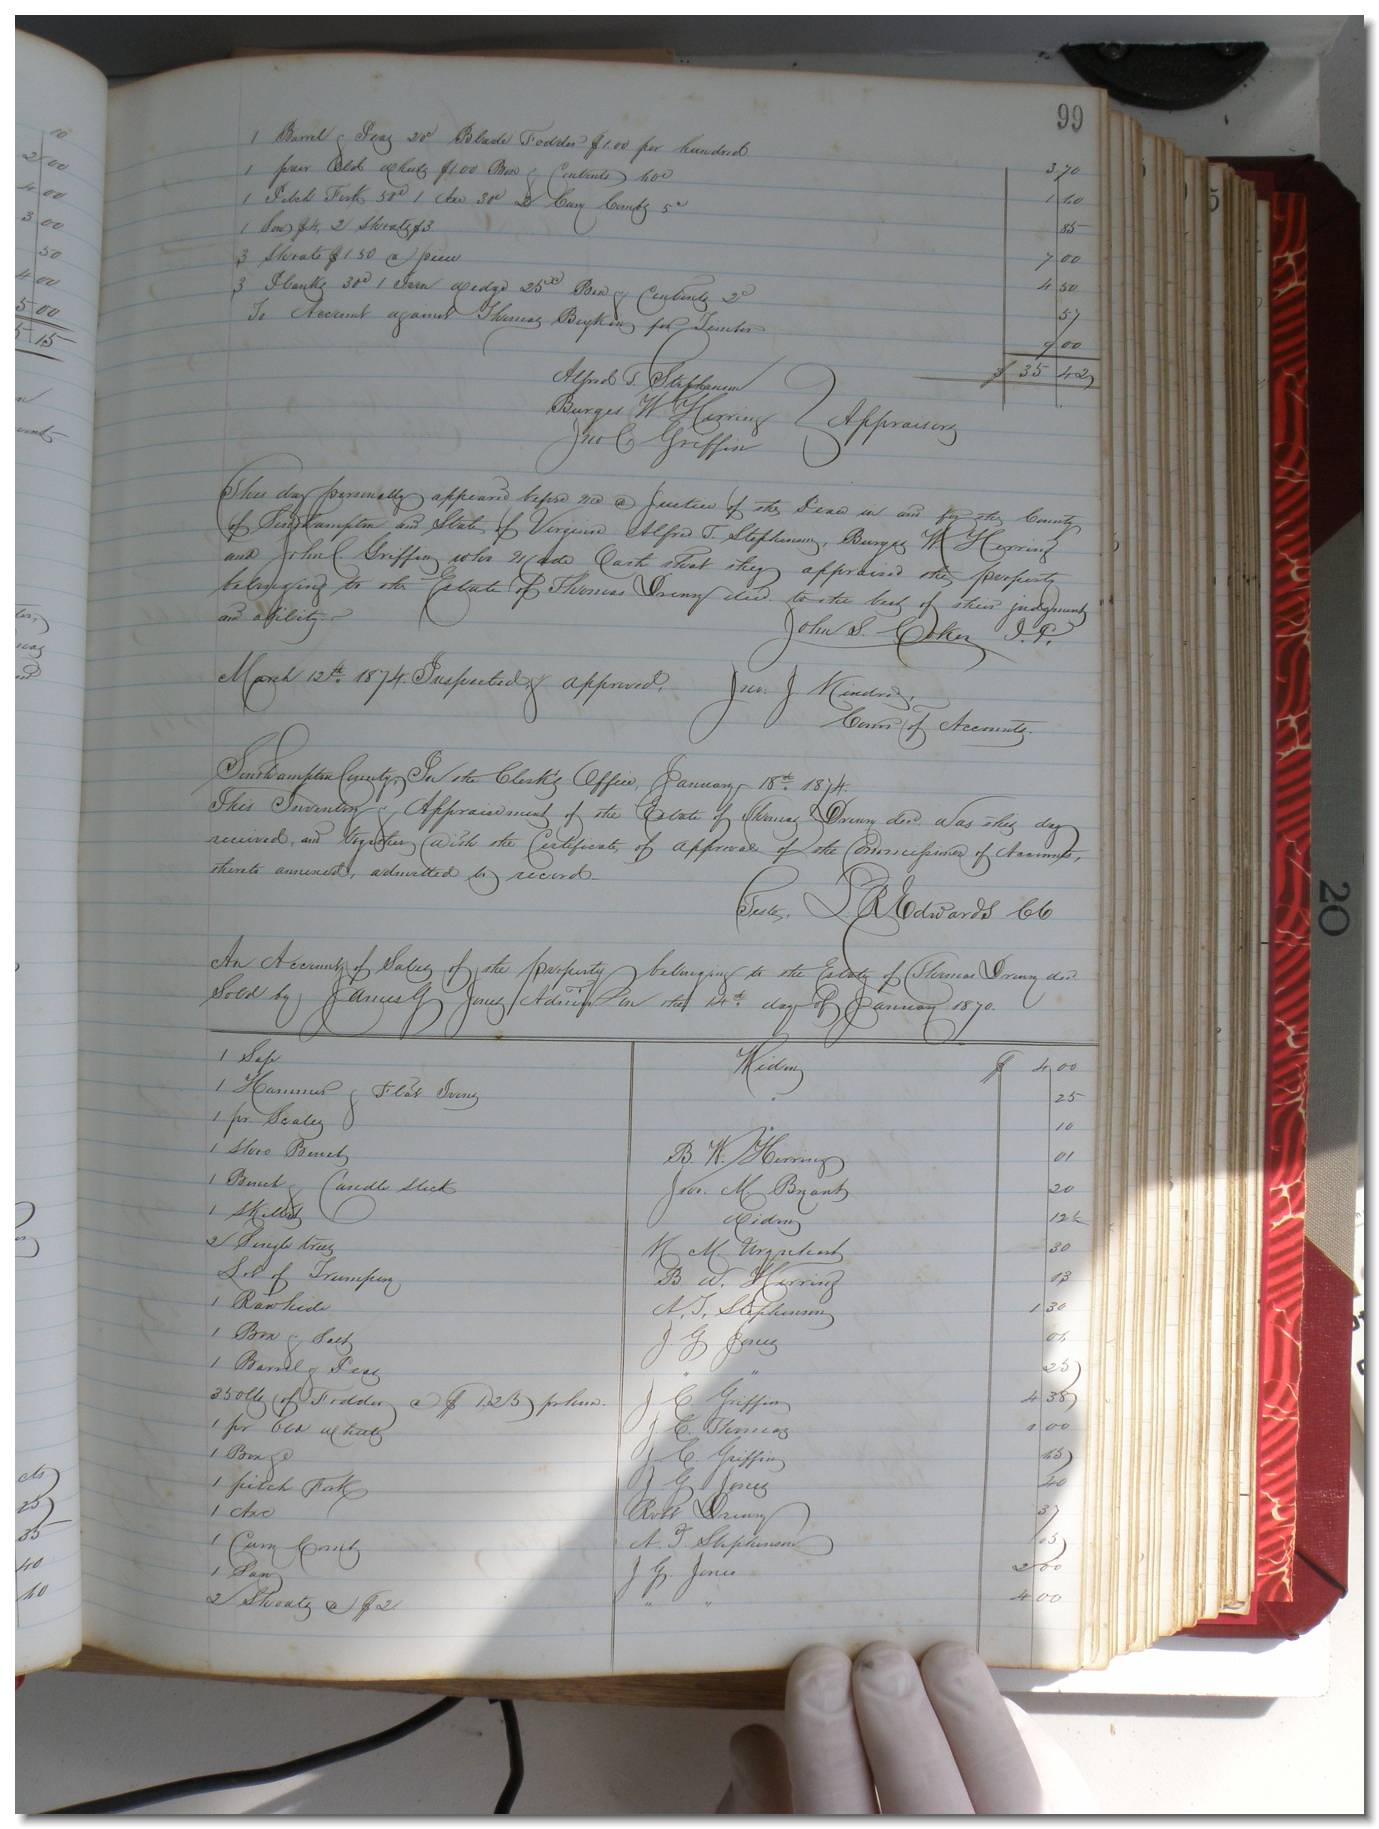 99
1 Barrel & Peas 20c Blade Fodder $1.00 per hundred 3 70
1 pair Old Wheels $1.00 Box & Contents 60c 1 60
1 Pitch Fork 50c 1 Axe 30c 2 Curry Combs 5c 85
1 Sow $4, 2 Shoats $3 7 00
3 Shoats $1.50 a piece 4 50
3 Planks 30c 1 Iron Wedge 25cts Box & Contents 2c 57
To Account against Thomas Boykin for Timber
$ 35 42
Alfred T. Stephenson
Burges W Herring Appraisers
Jno C Griffin
This day personally appeared before me a Justice of the Peace in and for the County
of Southampton and State of Virginia Alfred T. Stephenson, Burges W Herring
and John C Griffin who made Oath that they appraised the property
belonging to the Estate of Thomas Drewry decd. to the best of their judgment
and ability.
John S. Coker J.P.
March 12th. 1874. Inspected & approved. Jno. J Kindred,
Comr of Accounts.
Southampton County, In the Clerk's Office, January 18th. 1874.
This Inventory & Appraisement of the Estate of Thomas Drewry decd. was this day
received, and together with the Certificate of approval of the Commissioner of Accounts,
thereto annexed, admitted to record.
Teste, L. R. Edwards CC
An Account of Sales of the property belonging to the Estate of Thomas Drewry decd.
Sold by James G Jones Admr on the 14th. day of January 1870.
1 Safe Widow $ 4 00
1 Hammer & Flat Irons " 25
1 pr Scales " 10
1 Shoe Bench B. W. Herring 01
1 Bench & Candle Stick Jno. M. Bryant 20
1 Skillet Widow 12½
2 Single trees M. Urquhart 30
Lot of Trumpery B. W. Herring 03
1 Rawhide A. T. Stephenson 1 30
1 Box & Salt J G Jones
1 Barrel & Peas " " 25
350lbs of Fodder @ $1.25 pr hun. J C Griffin 4 38
1 pr Old Wheels J E. Thomas 1 00
1 Box J C. Griffin
1 pitch Fork J G Jones 40
1 Axe Robt Drewry 37
1 Curry Comb A. T Stephenson 05
1 Sow J G. Jones 2 00
2 Shoats @ $2 " " 4 00